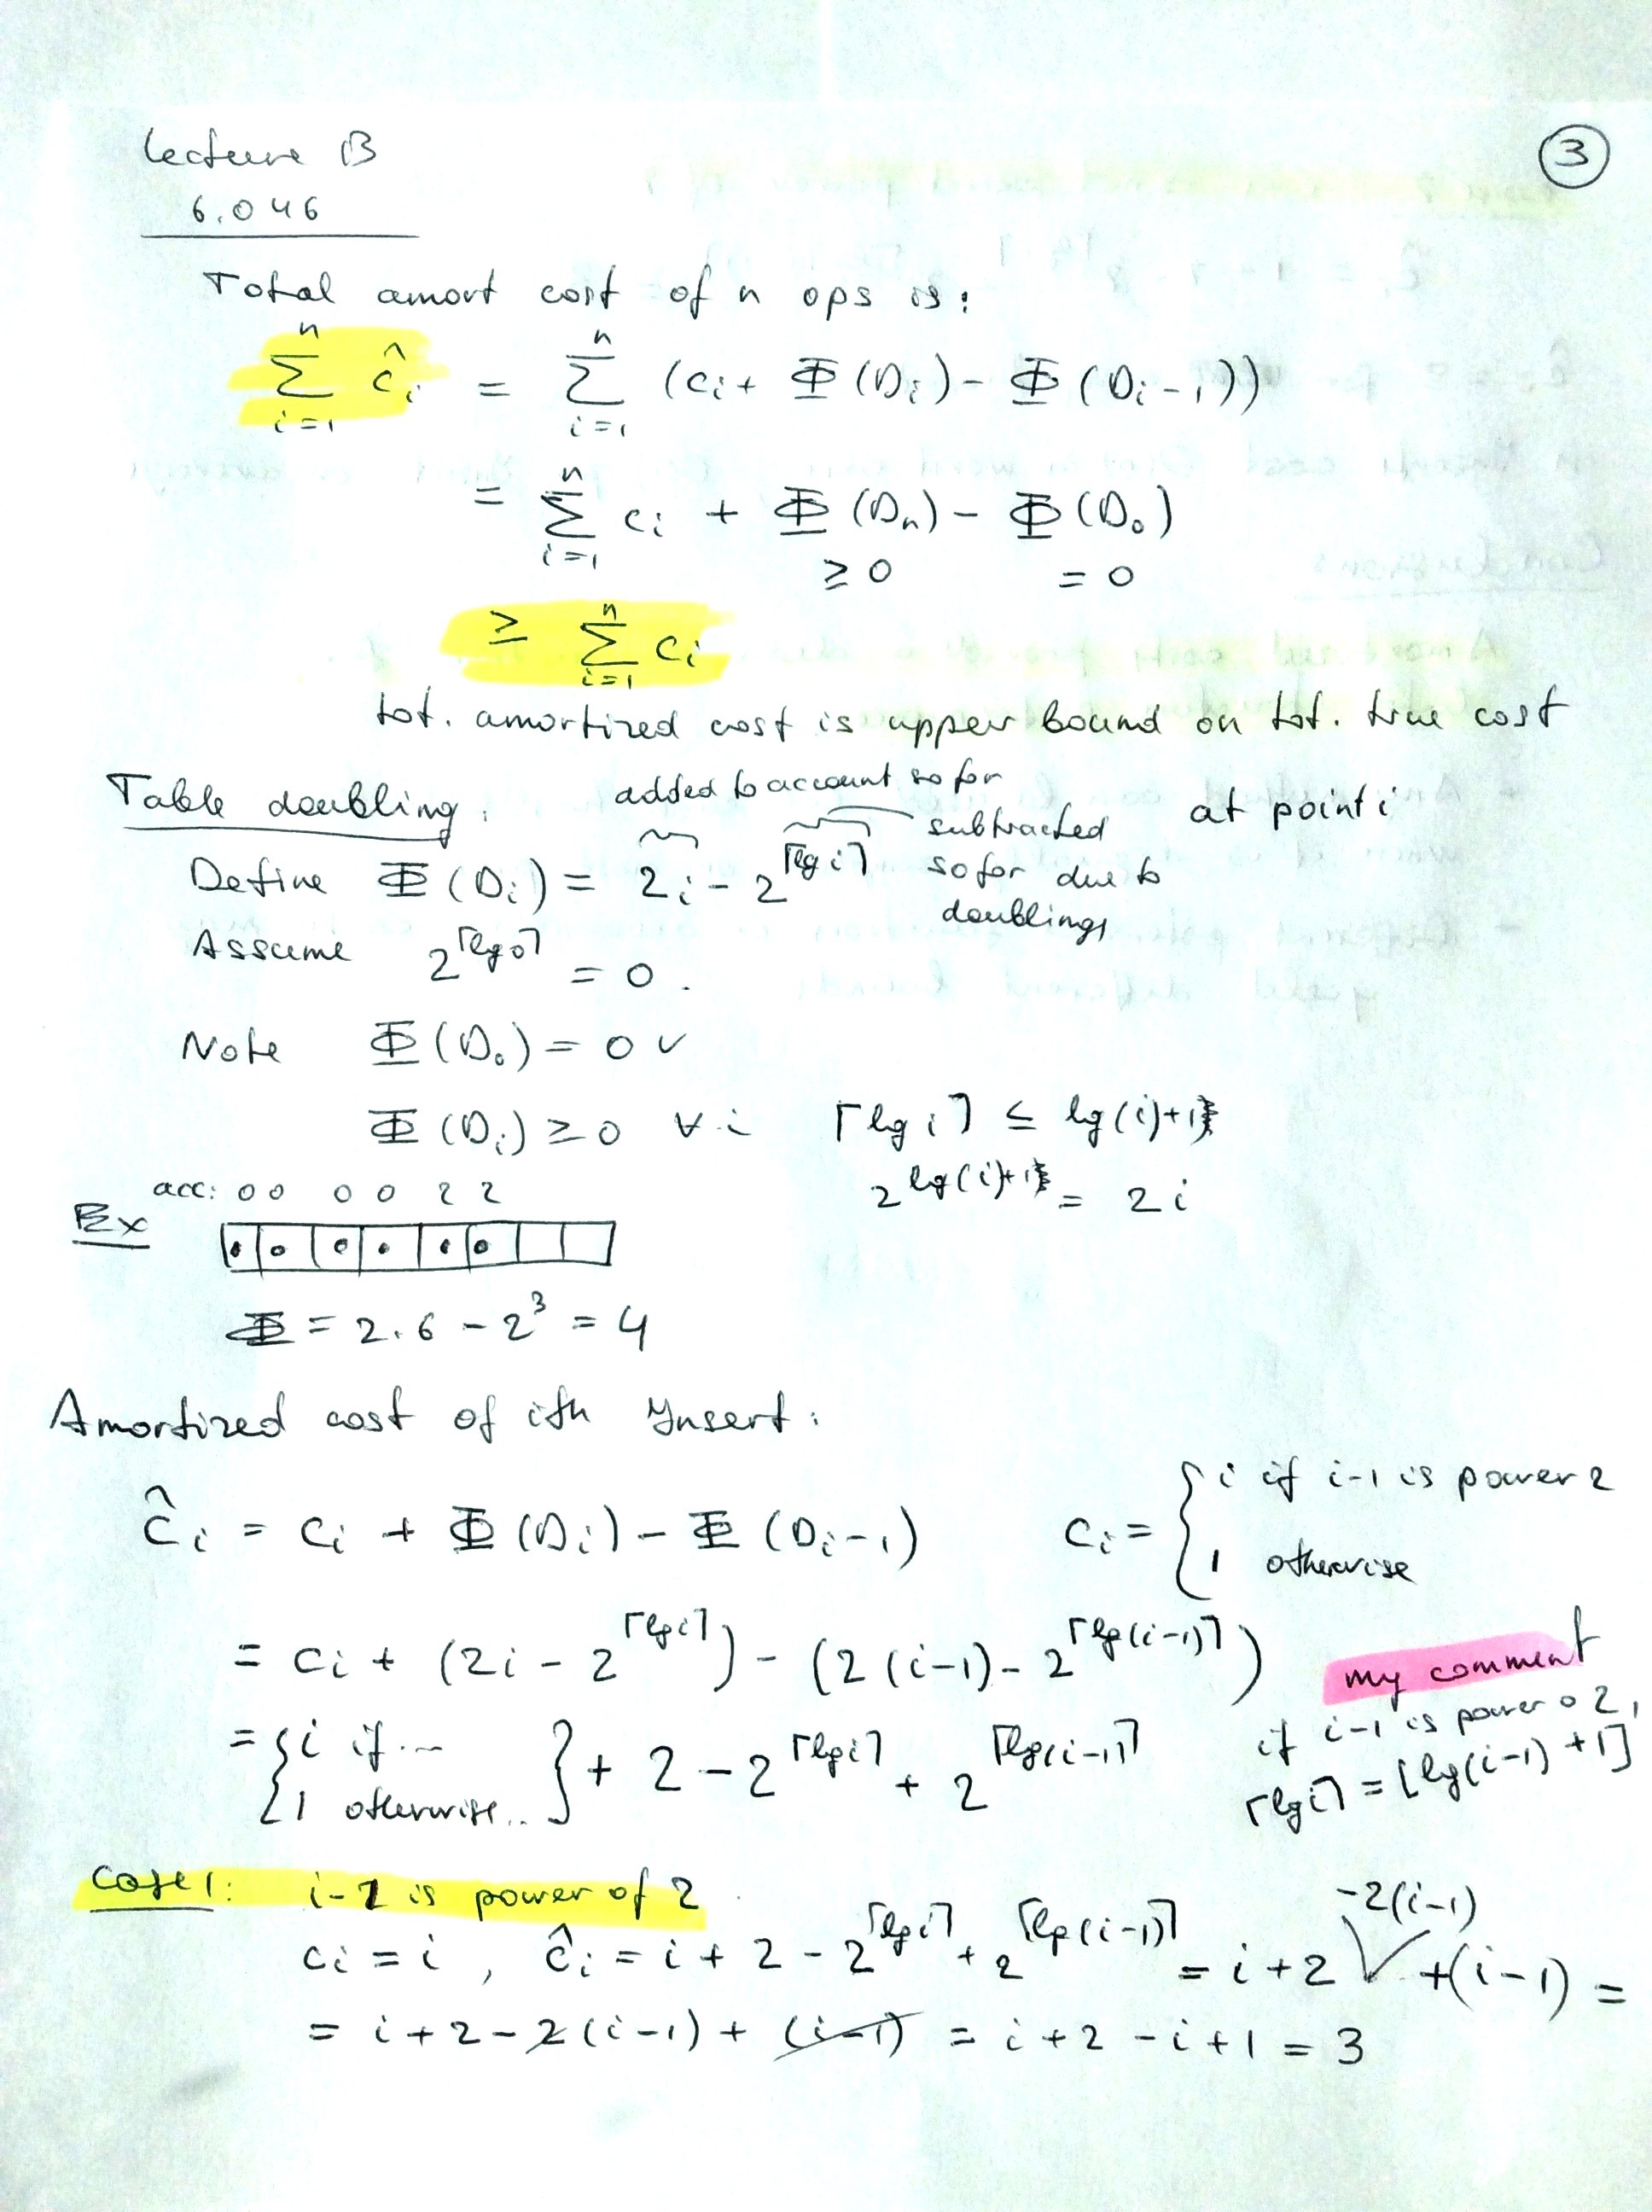 Lecture 13
3
6.046
Total amort cost of n ops is:
∑_{i=1}^{n} ĉ_i = ∑_{i=1}^{n} (c_i + Φ(D_i) − Φ(D_{i−1}))
= ∑_{i=1}^{n} c_i + Φ(D_n) − Φ(D_0)
≥ 0 = 0
≥ ∑_{i=1}^{n} c_i
tot. amortized cost is upper bound on tot. true cost
Table doubling:
added to account so far
at point i
subtracted so far due to doublings
Define Φ(D_i) = 2i − 2^{⌈lg i⌉}
Assume 2^{⌈lg 0⌉} = 0.
Note Φ(D_0) = 0 ✓
Φ(D_i) ≥ 0 ∀ i ⌈lg i⌉ ≤ lg(i)+1
2^{lg(i)+1} = 2i
acc: 0 0 0 0 2 2
Ex
Φ = 2·6 − 2^3 = 4
Amortized cost of ith Insert:
ĉ_i = c_i + Φ(D_i) − Φ(D_{i−1}) c_i = { i if i−1 is power 2
1 otherwise
= c_i + (2i − 2^{⌈lg i⌉}) − (2(i−1) − 2^{⌈lg(i−1)⌉})
my comment
if i−1 is power o 2,
⌈lg i⌉ = [lg(i−1) + 1]
= { i if ...
1 otherwise.. } + 2 − 2^{⌈lg i⌉} + 2^{⌈lg(i−1)⌉}
Case 1: i−1 is power of 2
−2(i−1)
c_i = i, ĉ_i = i + 2 − 2^{⌈lg i⌉} + 2^{⌈lg(i−1)⌉} = i + 2 ✓ + (i−1) =
= i + 2 − 2(i−1) + (i−1) = i + 2 − i + 1 = 3